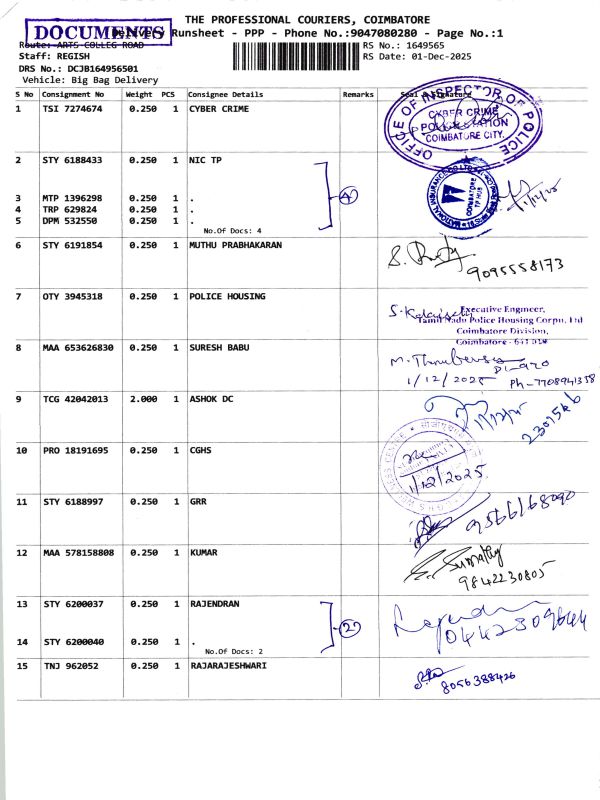 THE PROFESSIONAL COURIERS, COIMBATORE
DOCUMENTS
Delivery Runsheet - PPP - Phone No.:9047080280 - Page No.:1
Route: ARTS COLLEG ROAD
RS No.: 1649565
Staff: REGISH
RS Date: 01-Dec-2025
DRS No.: DCJB164956501
Vehicle: Big Bag Delivery
S No Consignment No Weight PCS Consignee Details Remarks Seal & Signature
1 TSI 7274674 0.250 1 CYBER CRIME
OFFICE OF INSPECTOR OF POLICE
CYBER CRIME
POLICE STATION
COIMBATORE CITY.
2 STY 6188433 0.250 1 NIC TP
3 MTP 1396298 0.250 1 .
4 TRP 629824 0.250 1 .
5 DPM 532550 0.250 1 .
No.Of Docs: 4
4
COIMBATORE
TP HUB
1/12/25
6 STY 6191854 0.250 1 MUTHU PRABHAKARAN
9095558173
7 OTY 3945318 0.250 1 POLICE HOUSING
Executive Engineer,
Tamil Nadu Police Housing Corpn. Ltd
Coimbatore Division,
Coimbatore - 641 018
8 MAA 653626830 0.250 1 SURESH BABU
1/12/2025 Ph-7708941358
9 TCG 42042013 2.000 1 ASHOK DC
10 PRO 18191695 0.250 1 CGHS
1/12/2025
11 STY 6188997 0.250 1 GRR
9566168090
12 MAA 578158808 0.250 1 KUMAR
9842230805
13 STY 6200037 0.250 1 RAJENDRAN
14 STY 6200040 0.250 1 .
No.Of Docs: 2
2
Rajendran
0442309644
15 TNJ 962052 0.250 1 RAJARAJESHWARI
8056388426